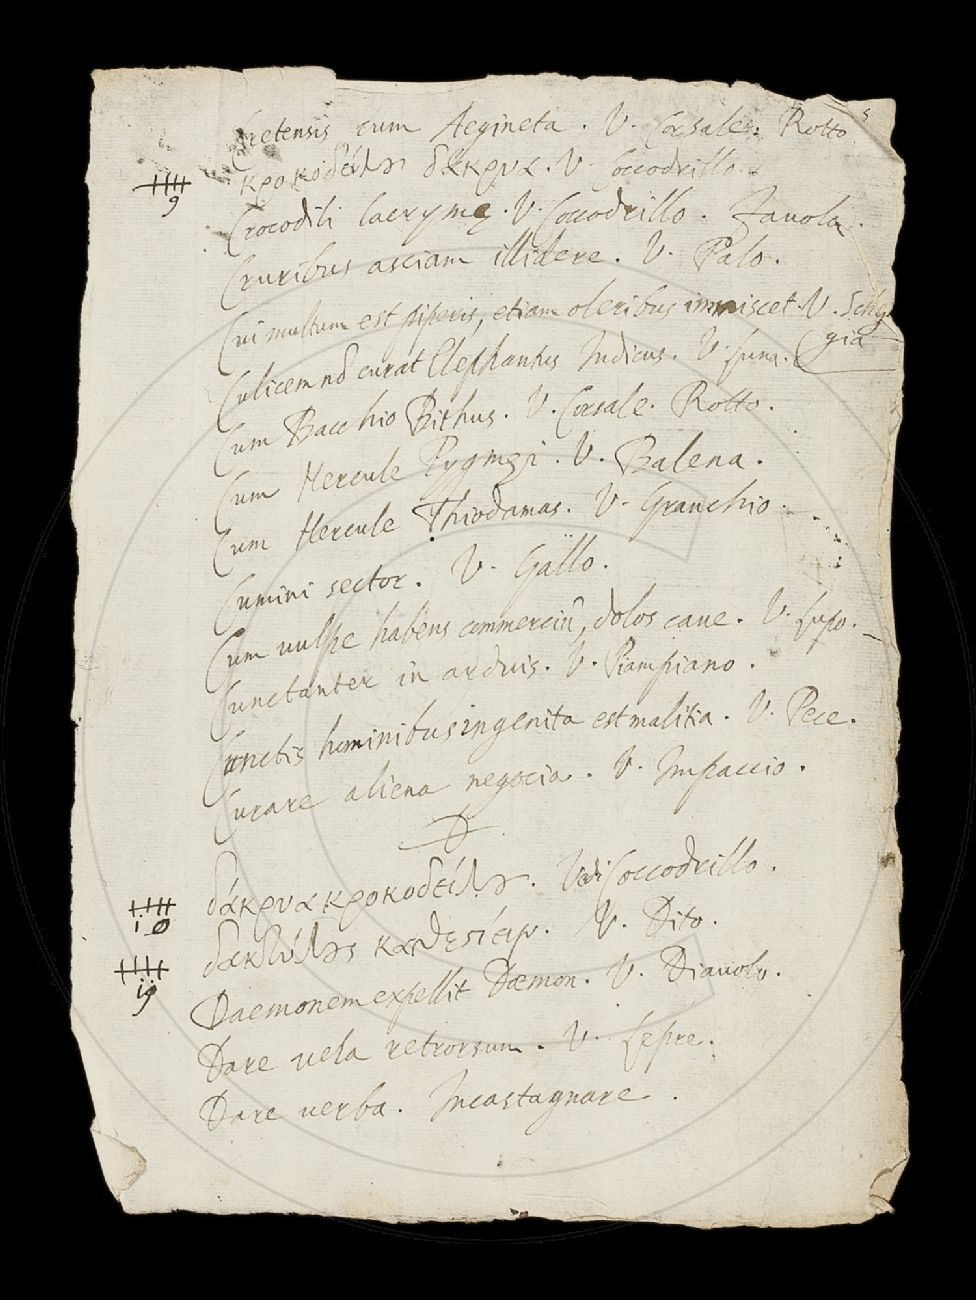 5
Cretensis cum Aegineta. V. Corsale. Rotto.
κροκοδείλου δάκρυα. V. Coccodrillo.
9
Crocodili lacrymę. V. Coccodrillo. Fauola.
Cruribus asciam illidere. V. Palo.
Cui multum est piperis, etiam oleribus immiscet. V.
gia
Culicem nō curat Elephantus Indicus. V. Luna.
Cum Bacchio Bithus. V. Corsale. Rotto.
Cum Hercule Pygmęi. V. Balena.
Cum Hercule Thiodamas. V. Granchio.
Cumini sector. V. Gallo.
Cum uulpe habens commerciū, dolos caue. V. Lupo.
Cunctanter in arduis. V. Piampiano.
Cunctis hominibus ingenita est malitia. V. Pece.
Curare aliena negocia. V. Impaccio.
D
δάκρυα κροκοδείλου. Vedi Coccodrillo.
10
V. Dito.
Daemonem expellit Dæmon. V. Diauolo.
Dare uela retrorsum. V. Lepre.
Dare uerba. Incastagnare.